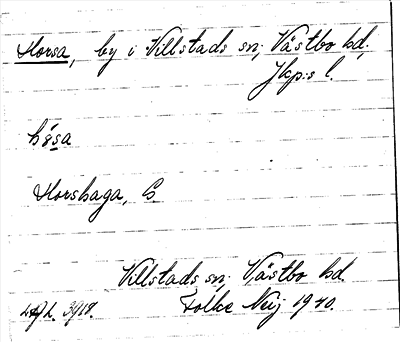 Horsa, by i Villstads sn; Västbo hd.
Jkp:s l.
hösa
Horshaga, G.
Villstads sn; Västbo hd.
3918. Folke Neij 1940.